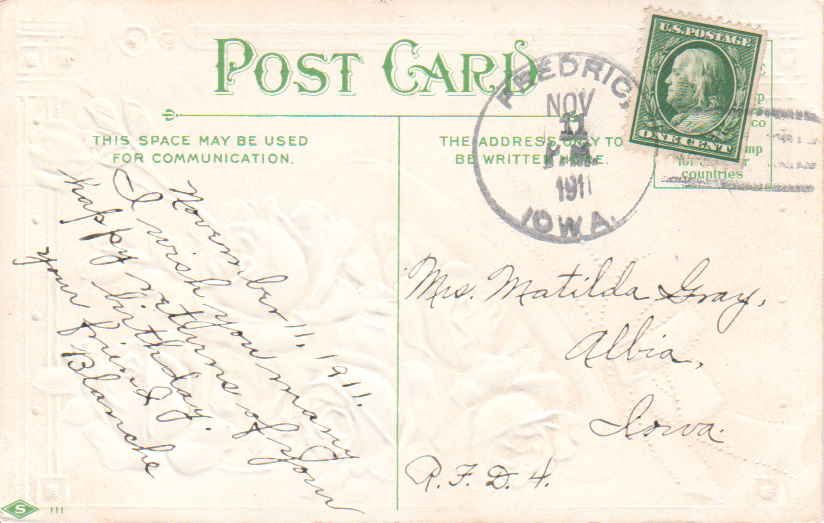 POST CARD
THIS SPACE MAY BE USED
FOR COMMUNICATION.
THE ADDRESS ONLY TO
BE WRITTEN HERE.
FREDRIC,
NOV
11
P.M.
1911
IOWA.
U.S. POSTAGE
ONE CENT
countries
November 11, 1911.
I wish you many
happy returns of your
birthday.
your friend
Blanche
Mrs. Matilda Gray,
Albia,
Iowa.
R.F.D. 4.
S
111